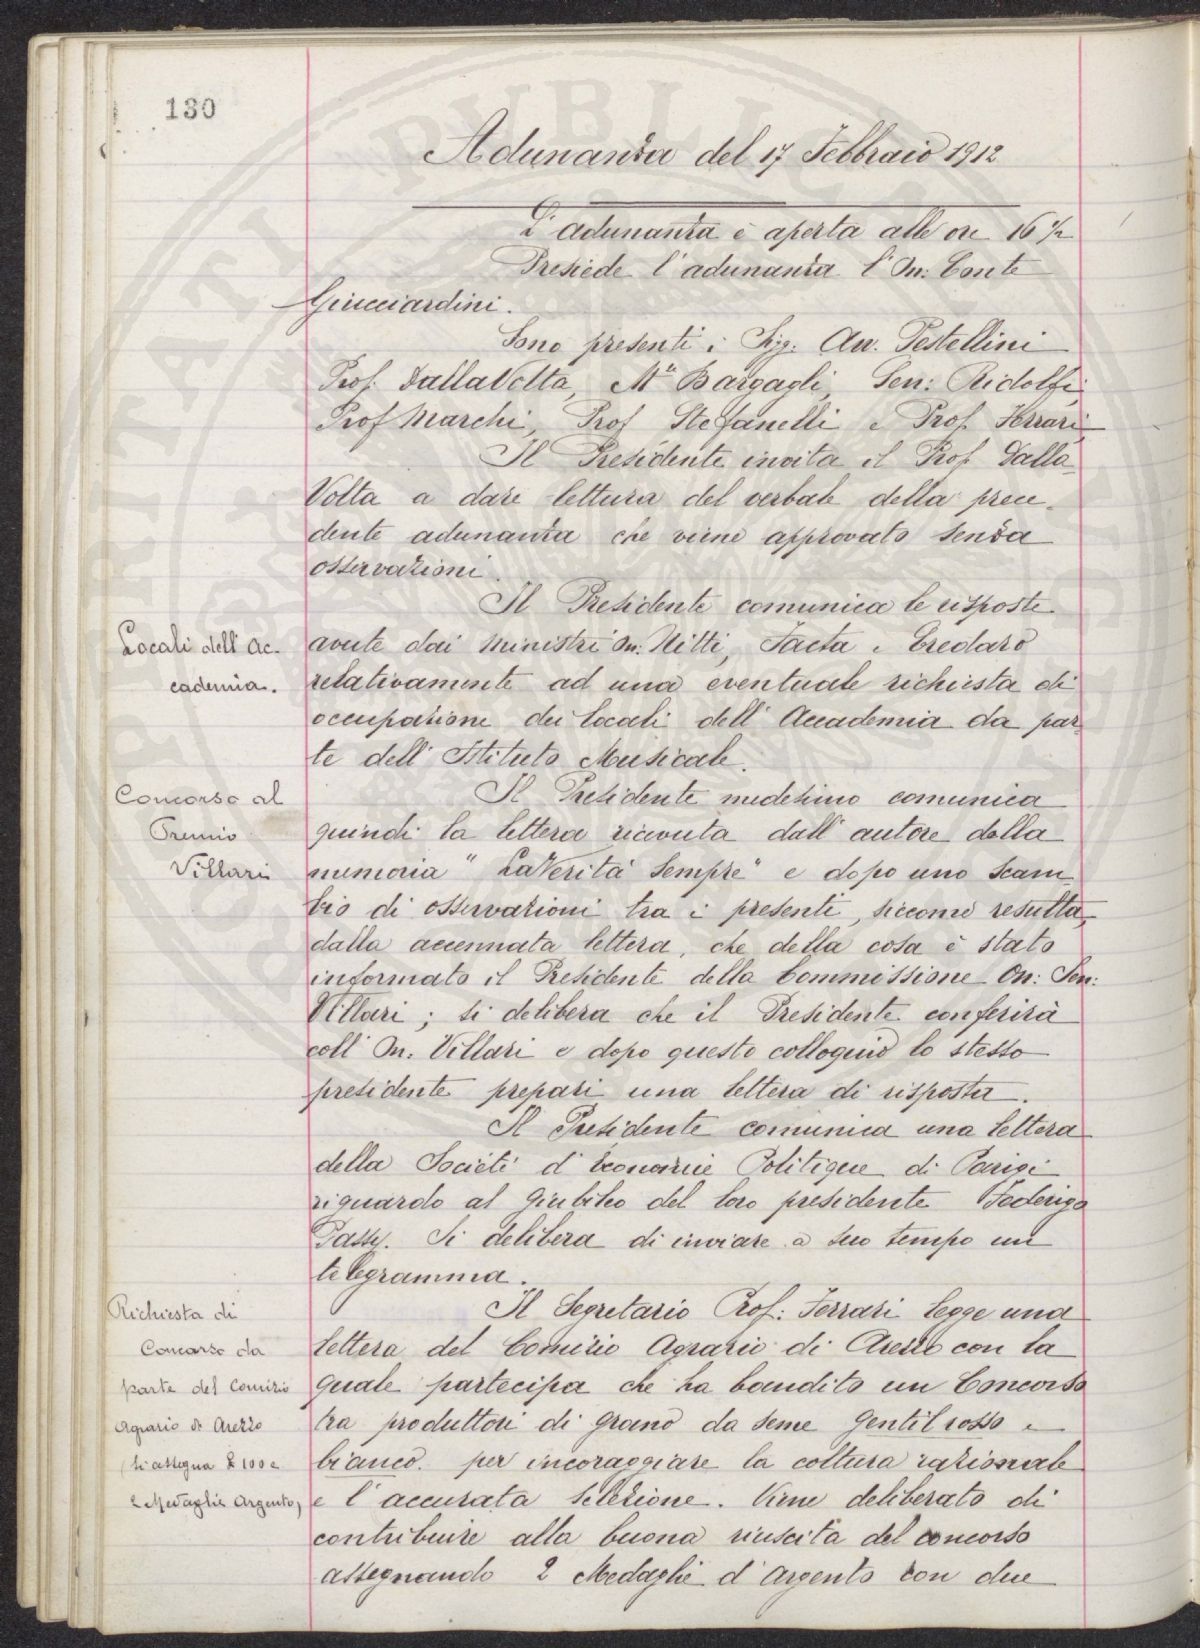 130
Adunanza del 17 Febbraio 1912
L'adunanza è aperta alle ore 16 1/2
Presiede l'adunanza l'On: Conte
Guicciardini.
Sono presenti i Sigg. Avv. Pestellini
Prof. DallaVolta, Mse Bargagli, Sen: Ridolfi,
Prof Marchi, Prof Stefanelli e Prof. Ferrari
Il Presidente invita il Prof. Dalla
Volta a dare lettura del verbale della prece-
dente adunanza che viene approvato senza
osservazioni.
Il Presidente comunica le risposte
Locali dell'Ac-
cademia.
avute dai Ministri On: Nitti, Facta e Credaro
relativamente ad una eventuale richiesta di
occupazione dei locali dell'Accademia da par-
te dell'Istituto Musicale.
Concorso al
Premio
Villari
Il Presidente medesimo comunica
quindi la lettera ricevuta dall'autore della
memoria "La Verità Sempre" e dopo uno scam-
bio di osservazioni tra i presenti, siccome resulta,
dalla accennata lettera, che della cosa è stato
informato il Presidente della Commissione On: Sen:
Villari; si delibera che il Presidente conferirà
coll'On. Villari e dopo questo colloquio lo stesso
presidente prepari una lettera di risposta.
Il Presidente comunica una lettera
della Societé d'Economie Politique di Parigi
riguardo al Giubileo del loro presidente Federigo
Passy. Si delibera di inviare a suo tempo un
telegramma.
Richiesta di
Concorso da
parte del Comizio
Agrario di Arezzo
(si assegna £ 100 e
2 Medaglie Argento)
Il Segretario Prof: Ferrari legge una
lettera del Comizio Agrario di Arezzo con la
quale partecipa che ha bandito un Concorso
tra produttori di grano da seme Gentil rosso e
bianco. per incoraggiare la coltura razionale
e l'accurata selezione. Viene deliberato di
contribuire alla buona riuscita del concorso
assegnando 2 Medaglie d'Argento con due
PUBLICA